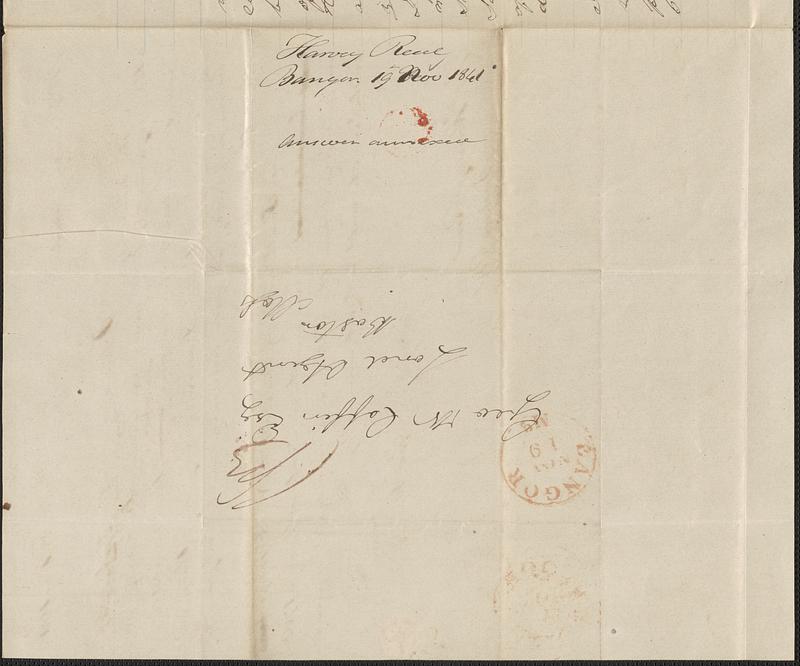 Harvey Reed
Bangor 19 Nov 1841
Answer annexed
Geo W Coffin Esq
Land Agent
Boston
Mas
BANGOR
NOV
19
Me